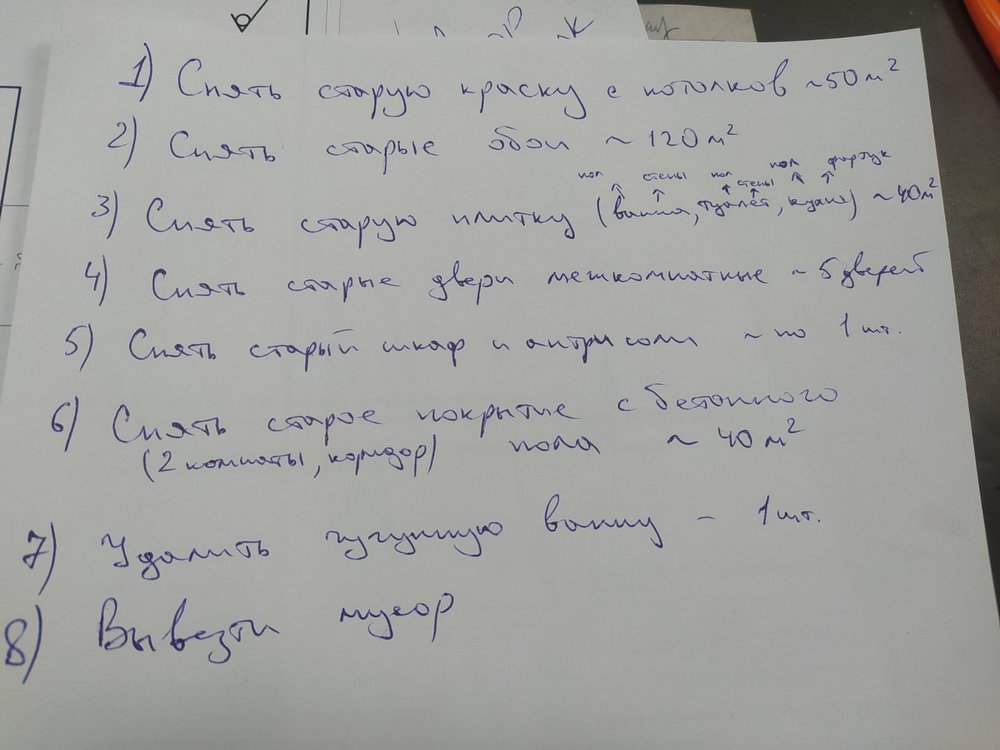 1) Снять старую краску с потолков ~50 м²
2) Снять старые обои ~ 120 м²
пол стены пол стены пол фартук
3) Снять старую плитку (ванна, туалет, кухня) ~ 40 м²
4) Снять старые двери межкомнатные ~ 5 дверей
5) Снять старый шкаф и антрисоли ~ по 1 шт.
6) Снять старое покрытие с бетонного
(2 комнаты, коридор) пола ~ 40 м²
7) Удалить чугунную ванну - 1 шт.
8) Вывезти мусор